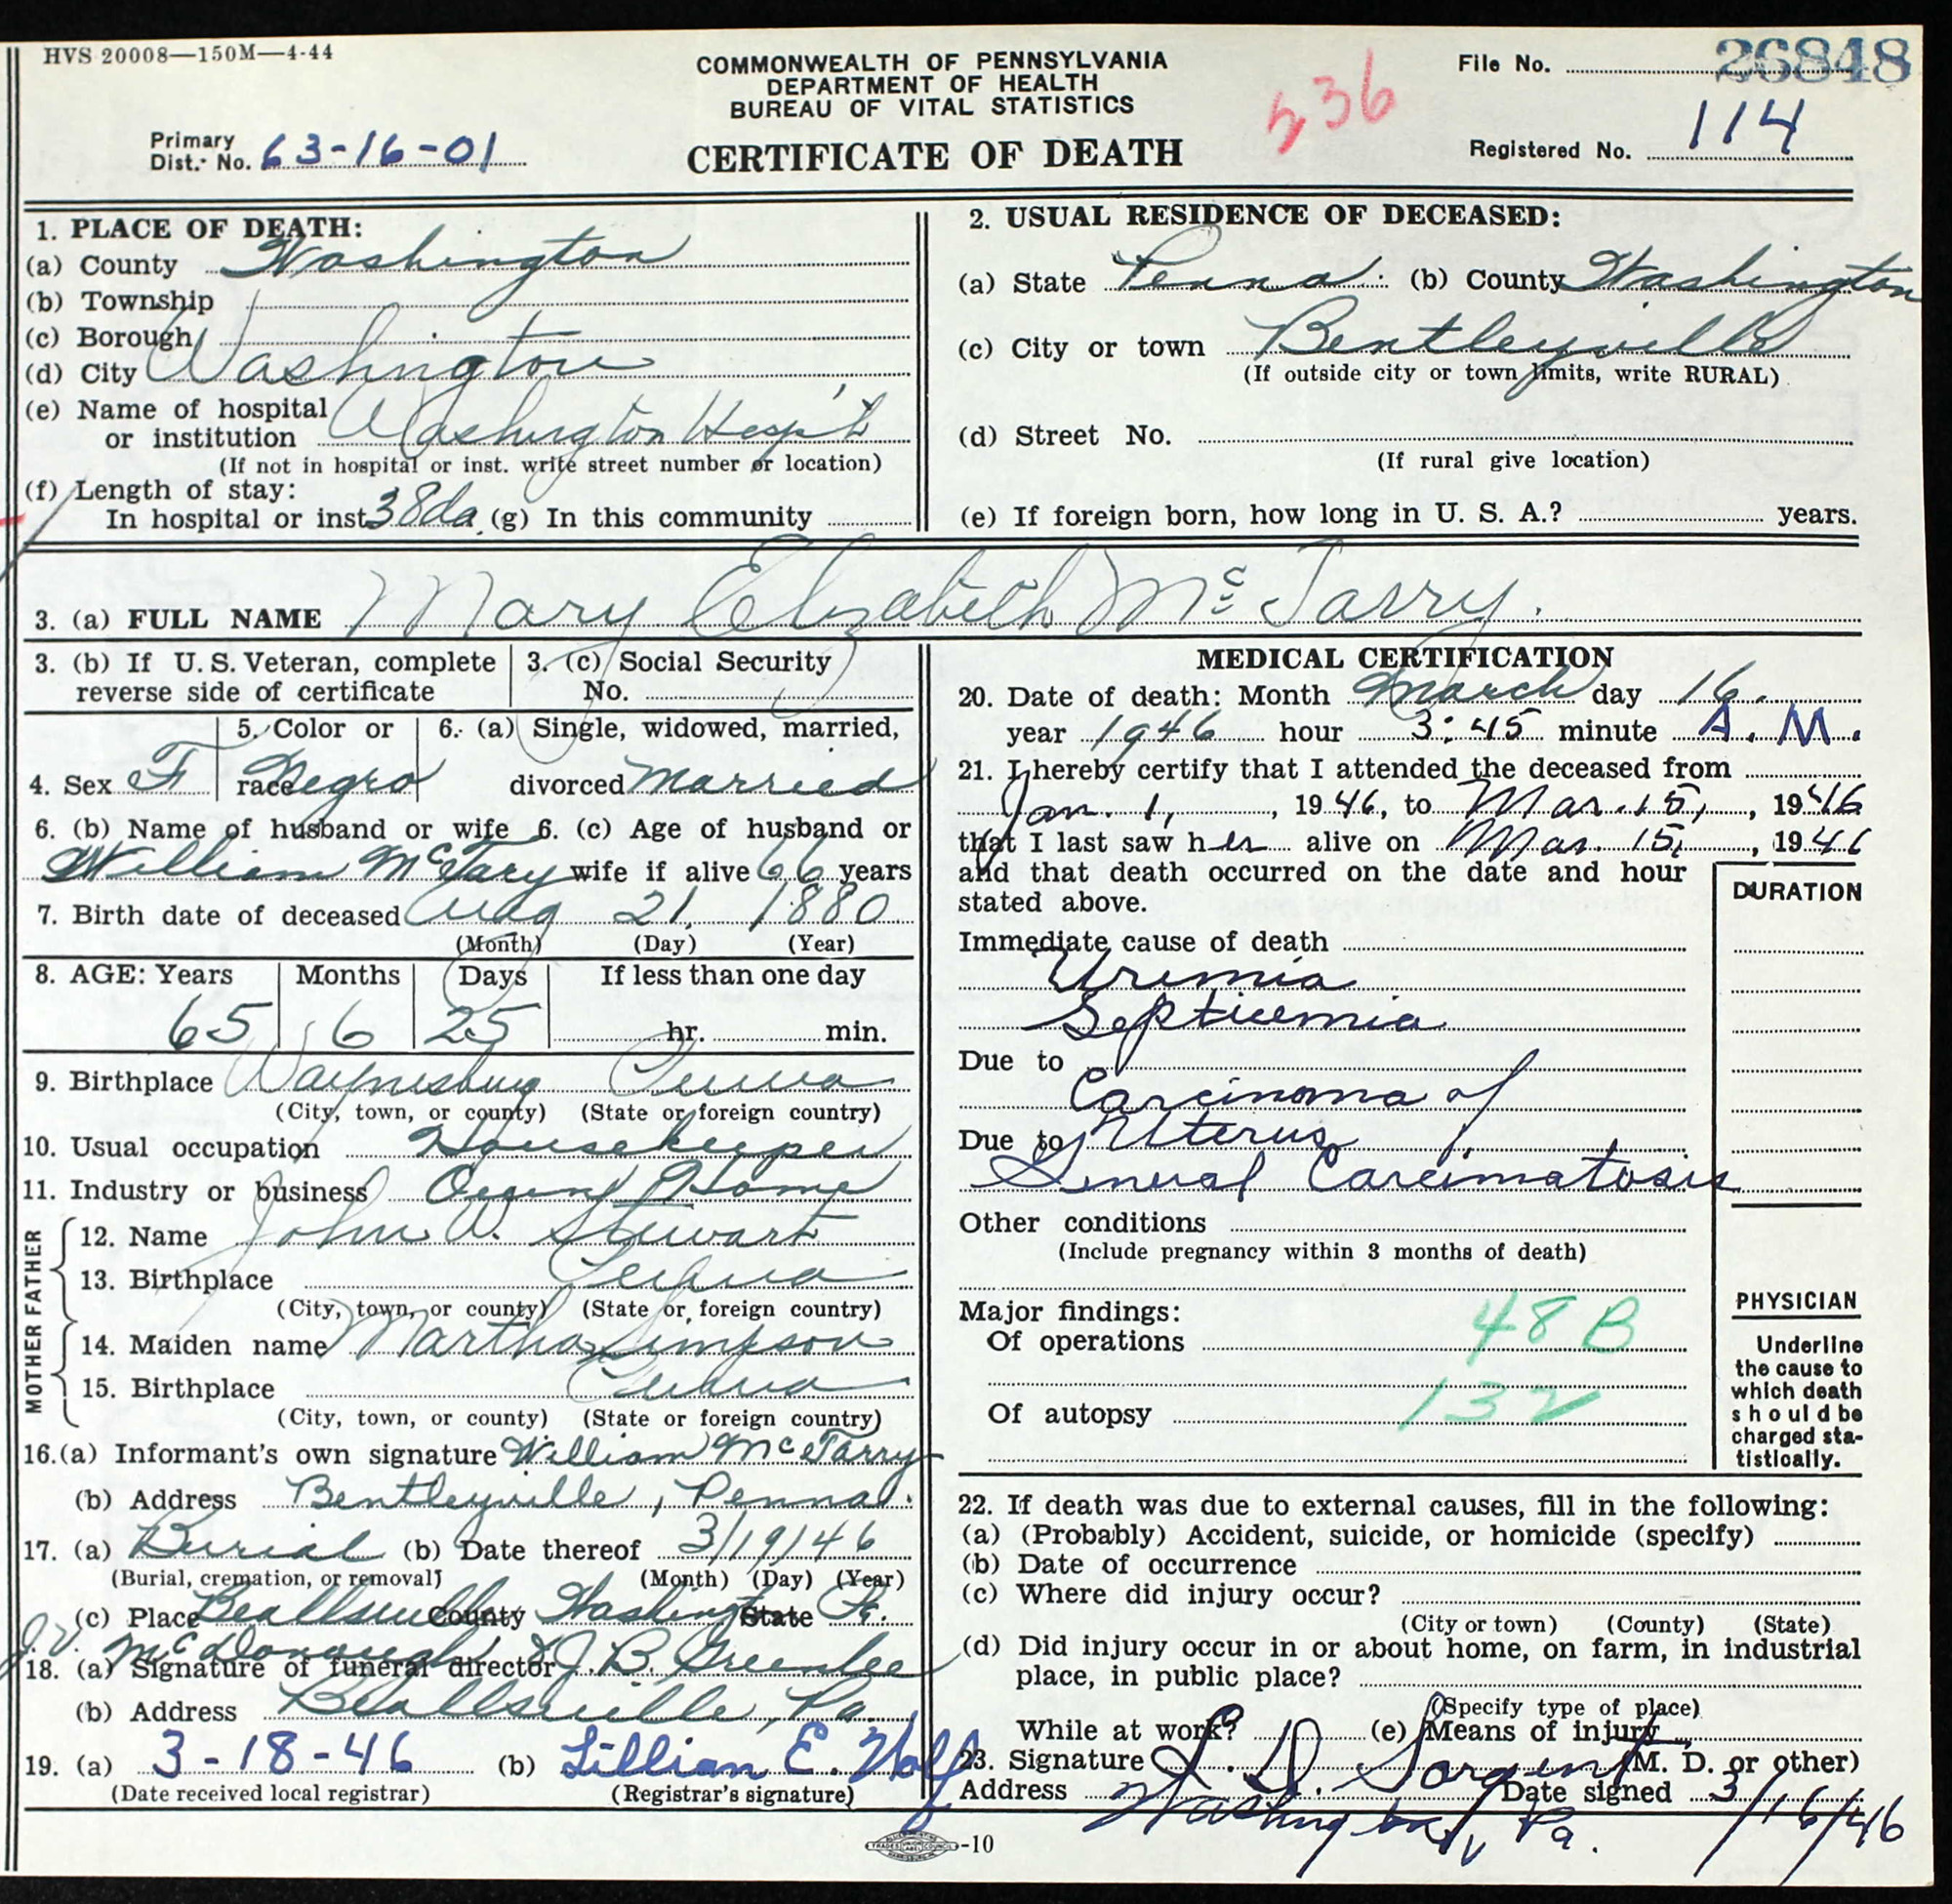 HVS 20008—150M—4-44
COMMONWEALTH OF PENNSYLVANIA
DEPARTMENT OF HEALTH
BUREAU OF VITAL STATISTICS
CERTIFICATE OF DEATH
Primary
Dist. No. 63-16-01
536
File No. 26848
Registered No. 114
1. PLACE OF DEATH:
(a) County Washington
(b) Township
(c) Borough
(d) City Washington
(e) Name of hospital
or institution Washington Hosp't
(If not in hospital or inst. write street number or location)
(f) Length of stay:
In hospital or inst 38da. (g) In this community
2. USUAL RESIDENCE OF DECEASED:
(a) State Penna. (b) County Washington
(c) City or town Bentleyville
(If outside city or town limits, write RURAL)
(d) Street No.
(If rural give location)
(e) If foreign born, how long in U. S. A.? years.
3. (a) FULL NAME Mary Elizabeth McTarry.
3. (b) If U. S. Veteran, complete
reverse side of certificate
3. (c) Social Security
No.
4. Sex F
5. Color or
race Negro
6. (a) Single, widowed, married,
divorced Married
6. (b) Name of husband or wife
William McTary
6. (c) Age of husband or
wife if alive 66 years
7. Birth date of deceased Aug 21, 1880
(Month) (Day) (Year)
8. AGE: Years Months Days If less than one day
65 6 25 hr. min.
9. Birthplace Waynesburg Penna
(City, town, or county) (State or foreign country)
10. Usual occupation Housekeeper
11. Industry or business Own Home
FATHER
12. Name John W. Stewart
13. Birthplace Penna
(City, town, or county) (State or foreign country)
MOTHER
14. Maiden name Martha Simpson
15. Birthplace Penna
(City, town, or county) (State or foreign country)
16.(a) Informant's own signature William McTarry
(b) Address Bentleyville, Penna.
17. (a) Burial (b) Date thereof 3/19/46
(Burial, cremation, or removal) (Month) (Day) (Year)
(c) Place Beallsville County Washington State Pa.
J.V. McDonough & J. B. Greenlee
18. (a) Signature of funeral director
(b) Address Beallsville, Pa.
19. (a) 3-18-46 (b) Lillian E. Wolf
(Date received local registrar) (Registrar's signature)
MEDICAL CERTIFICATION
20. Date of death: Month March day 16.
year 1946 hour 3:45 minute A. M.
21. I hereby certify that I attended the deceased from
Jan. 1, , 1946, to Mar. 15, , 1946
that I last saw her alive on Mar. 15, , 1946
and that death occurred on the date and hour
stated above.
DURATION
Immediate cause of death
Uremia
Septicemia
Due to
Carcinoma of
Due to Uterus
General Carcimatosis
Other conditions
(Include pregnancy within 3 months of death)
Major findings:
Of operations 48 B
Of autopsy 132
PHYSICIAN
Underline
the cause to
which death
should be
charged sta-
tistically.
22. If death was due to external causes, fill in the following:
(a) (Probably) Accident, suicide, or homicide (specify)
(b) Date of occurrence
(c) Where did injury occur?
(City or town) (County) (State)
(d) Did injury occur in or about home, on farm, in industrial
place, in public place?
(Specify type of place)
While at work? (e) Means of injury
23. Signature L. D. Sargent (M. D. or other)
Address Washington, Pa. Date signed 3/16/46
-10